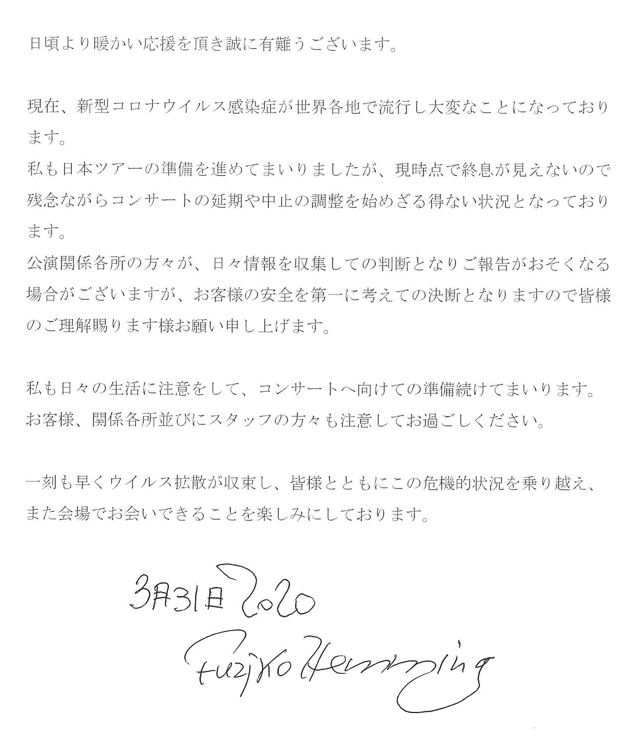 日頃より暖かい応援を頂き誠に有難うございます。
現在、新型コロナウイルス感染症が世界各地で流行し大変なことになっており
ます。
私も日本ツアーの準備を進めてまいりましたが、現時点で終息が見えないので
残念ながらコンサートの延期や中止の調整を始めざる得ない状況となっており
ます。
公演関係各所の方々が、日々情報を収集しての判断となりご報告がおそくなる
場合がございますが、お客様の安全を第一に考えての決断となりますので皆様
のご理解賜ります様お願い申し上げます。
私も日々の生活に注意をして、コンサートへ向けての準備続けてまいります。
お客様、関係各所並びにスタッフの方々も注意してお過ごしください。
一刻も早くウイルス拡散が収束し、皆様とともにこの危機的状況を乗り越え、
また会場でお会いできることを楽しみにしております。
3月31日 2020
Fuzjko Hemming